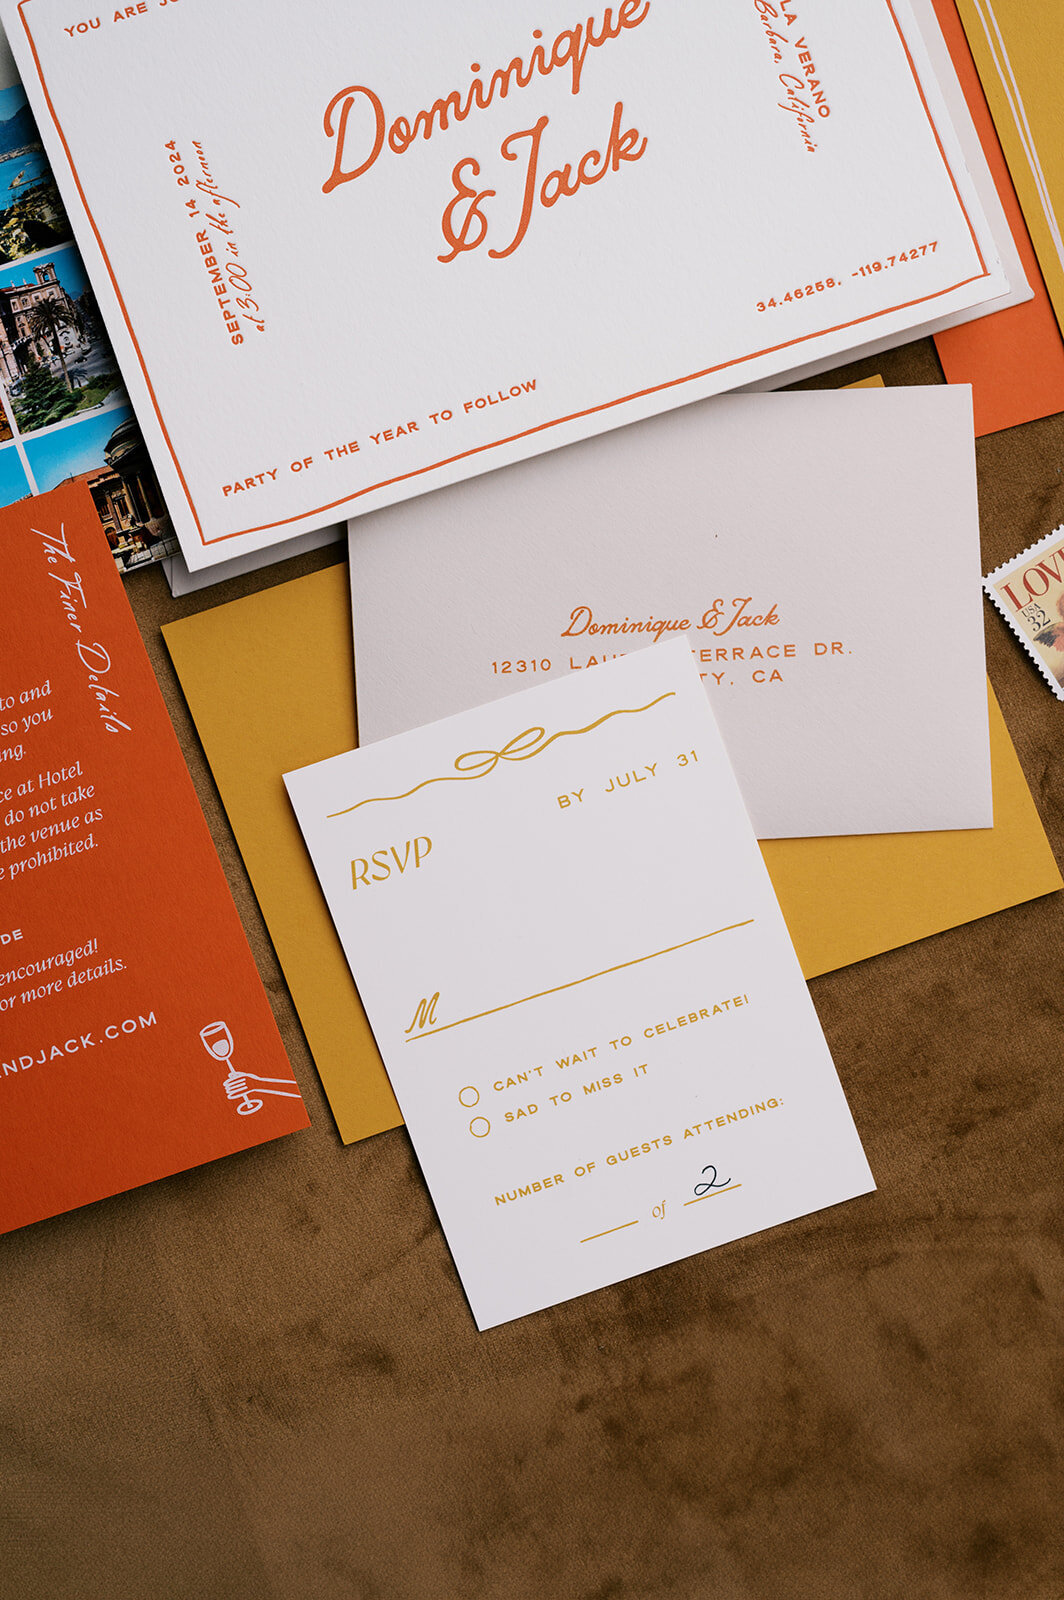 YOU ARE
Dominique
& Jack
LA VERANO
Barbara, California
SEPTEMBER 14 2024
at 3:00 in the afternoon
34.46258, -119.74277
PARTY OF THE YEAR TO FOLLOW
The Finer Details
to and
so you
at Hotel
do not take
the venue as
prohibited.
encouraged!
or more details.
NDJACK.COM
Dominique & Jack
12310 TERRACE DR.
CA
LOVE
USA
32
BY JULY 31
RSVP
M
CAN'T WAIT TO CELEBRATE!
SAD TO MISS IT
NUMBER OF GUESTS ATTENDING:
of 2